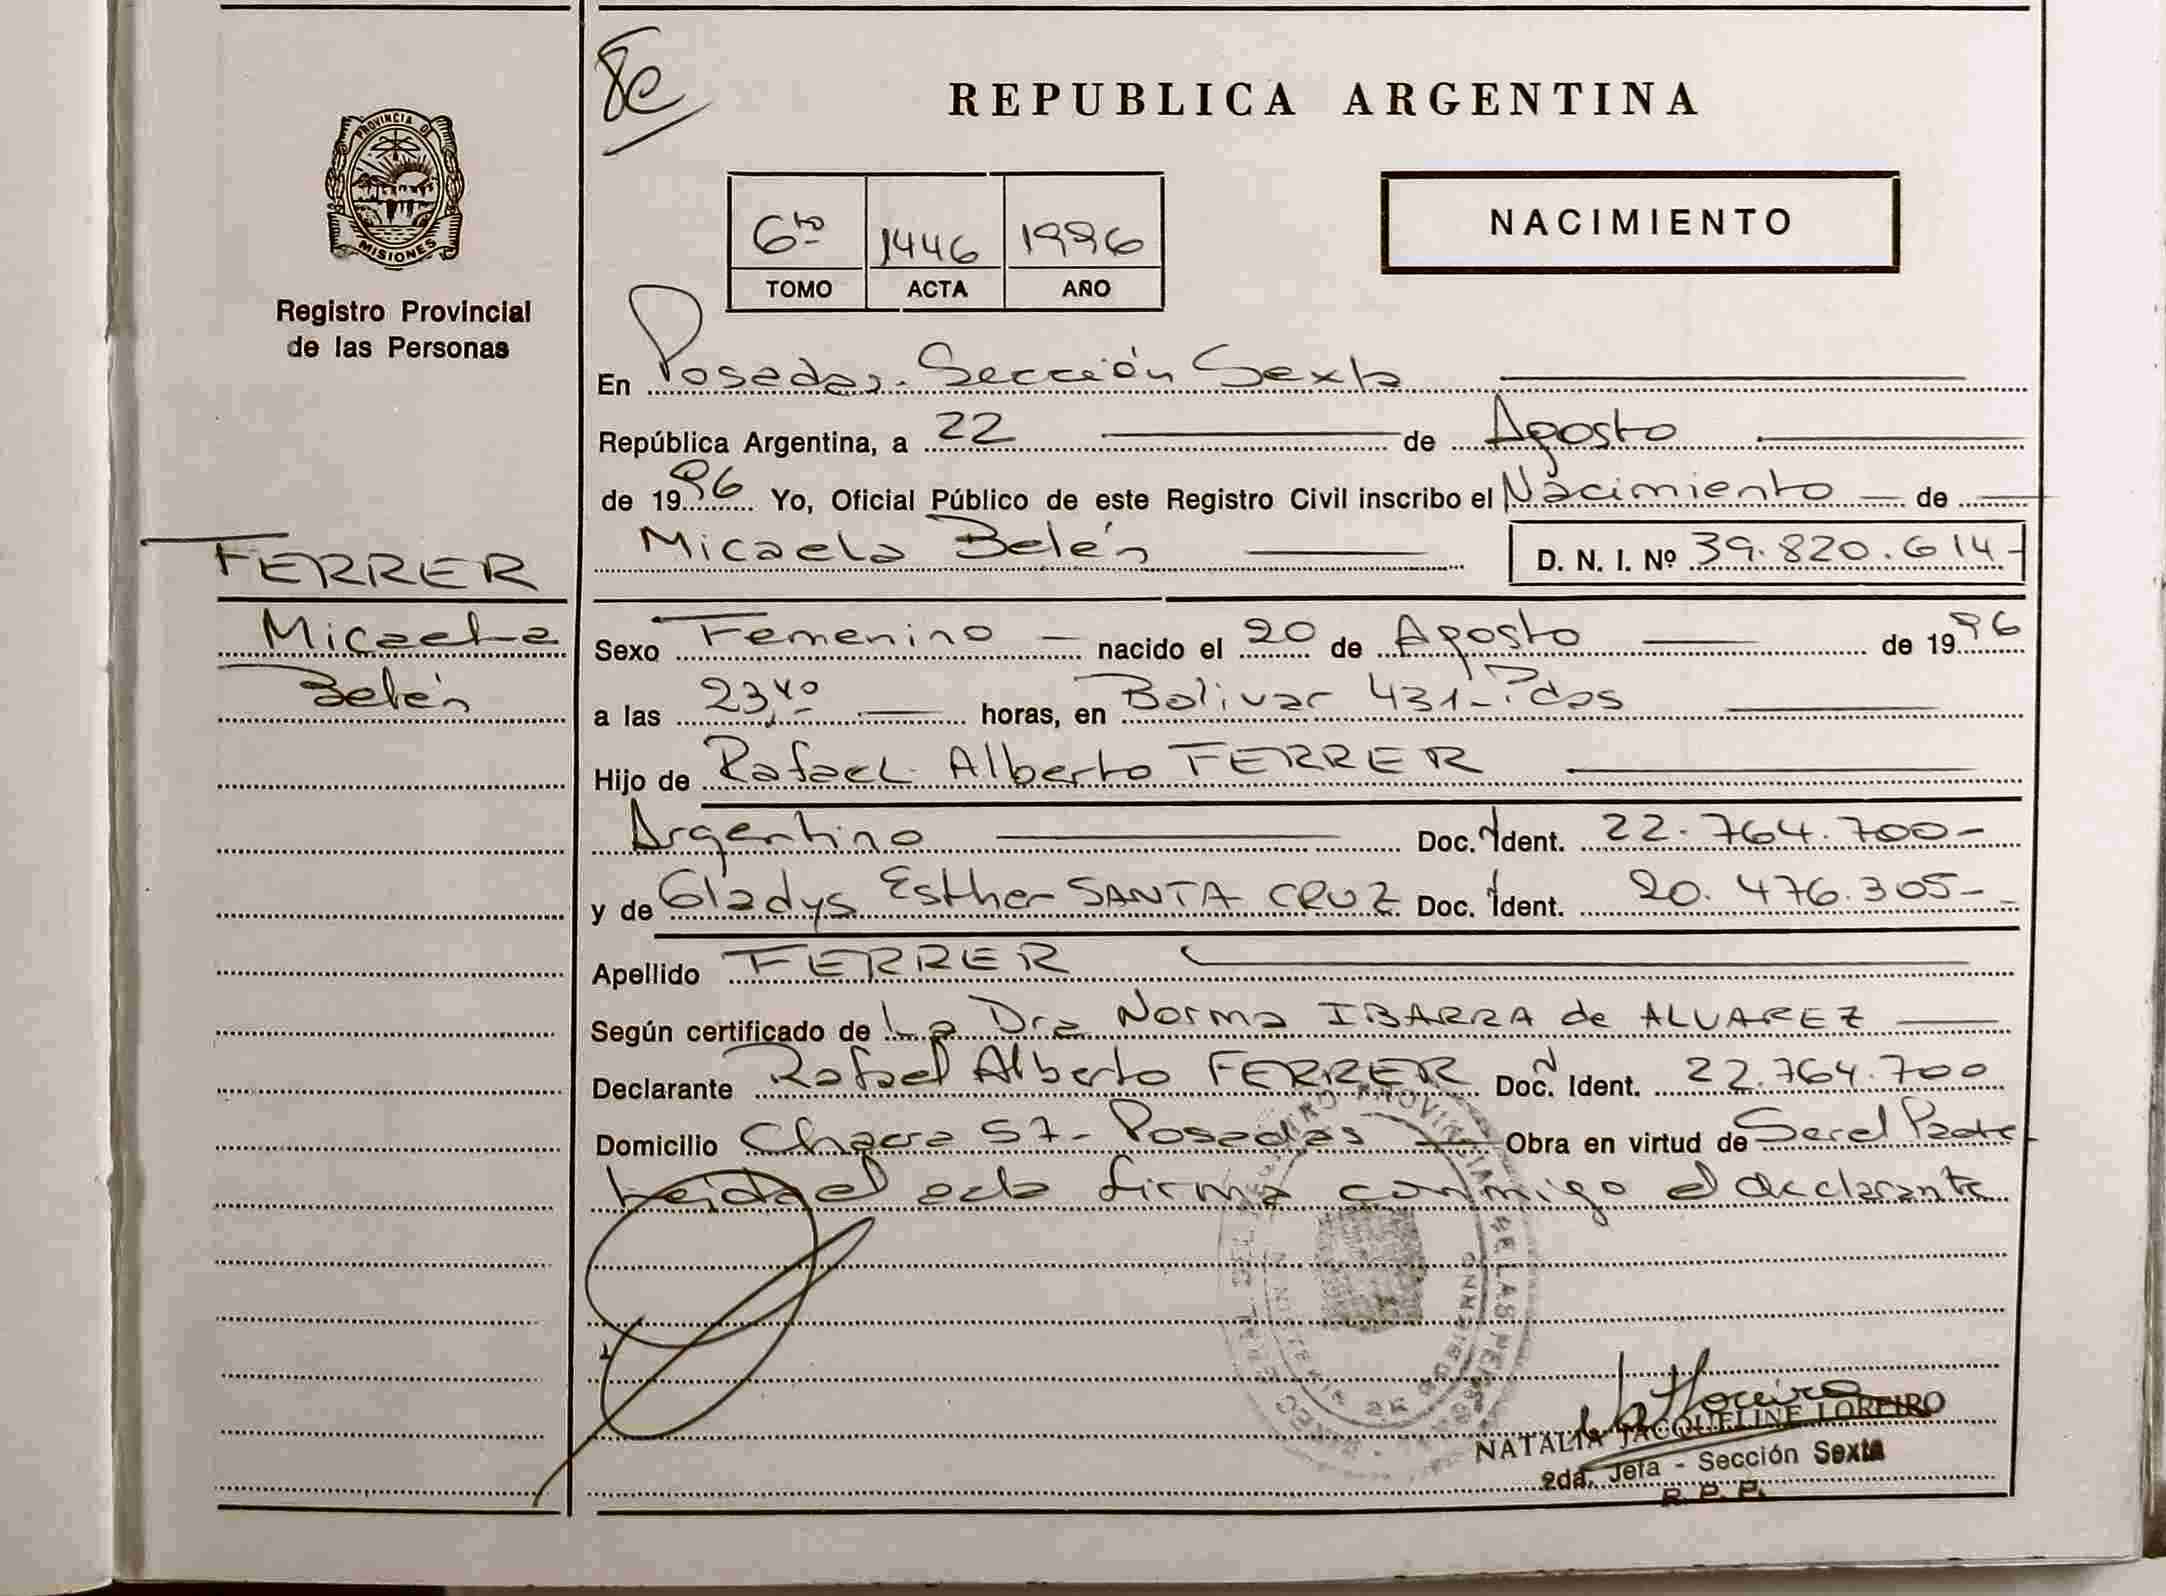 REPUBLICA ARGENTINA
PROVINCIA DE
MISIONES
Registro Provincial
de las Personas
6to 1446 1996
TOMO ACTA AÑO
NACIMIENTO
En Posadas. Sección Sexta
República Argentina, a 22 de Agosto
de 1996 Yo, Oficial Público de este Registro Civil inscribo el Nacimiento de
Micaela Belén D. N. I. Nº 39.820.614-
FERRER
Micaela
Belén
Sexo Femenino nacido el 20 de Agosto de 1996
a las horas, en Bolivar 431-Pdas
Hijo de Rafael Alberto FERRER
Argentino Doc. Ident. 22.764.700-
y de Gladys Esther SANTA CRUZ Doc. Ident. 20.476.305-
Apellido FERRER
Según certificado de La Dra Norma IBARRA de ALVAREZ
Declarante Rafael Alberto FERRER Doc. Ident. 22.764.700
Domicilio Chacra 57- Posadas Obra en virtud de Ser el Padre
Leida el acta firma conmigo el declarante
NATALIA JACQUELINE LOREIRO
2da. Jefa - Sección Sexta
R. P. P.